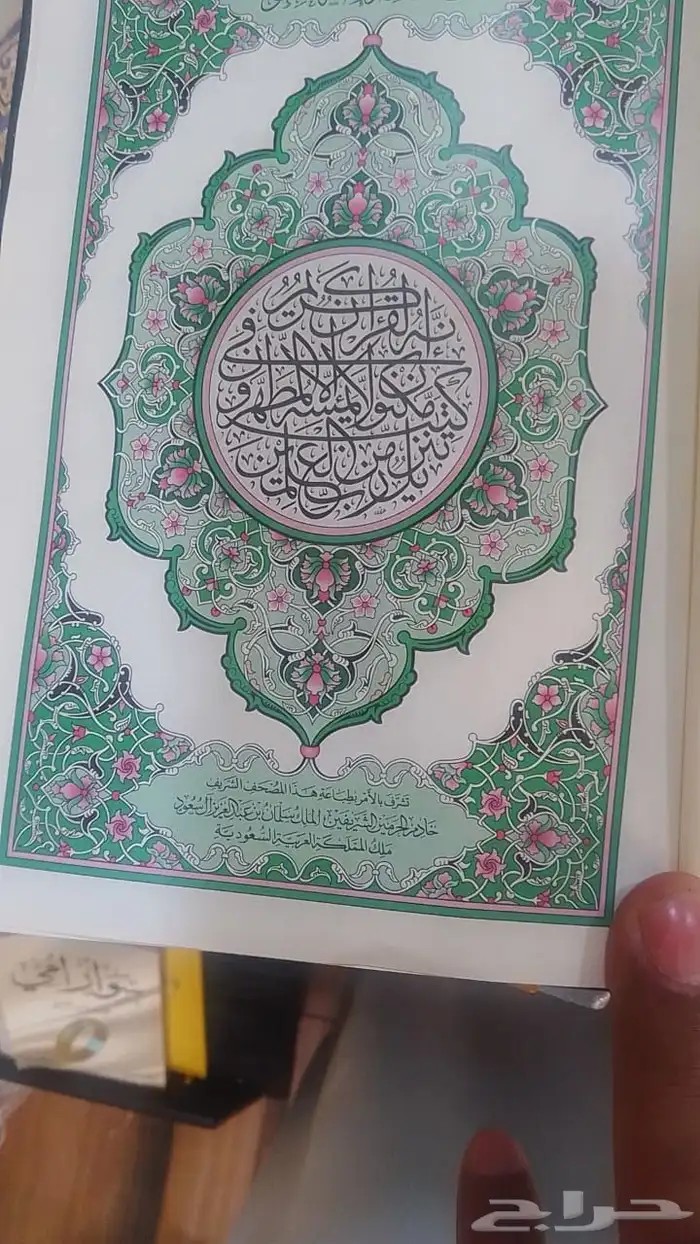 إِنَّهُ لَقُرْءَانٌ كَرِيمٌ
فِي كِتَٰبٍ مَّكْنُونٍ لَّا يَمَسُّهُ إِلَّا الْمُطَهَّرُونَ
تَنزِيلٌ مِّن رَّبِّ الْعَٰلَمِينَ
تشرّف بالأمر بطباعة هذا المصحف الشريف
خادم الحرمين الشريفين الملك سلمان بن عبد العزيز آل سعود
ملك المملكة العربية السعودية
حراج